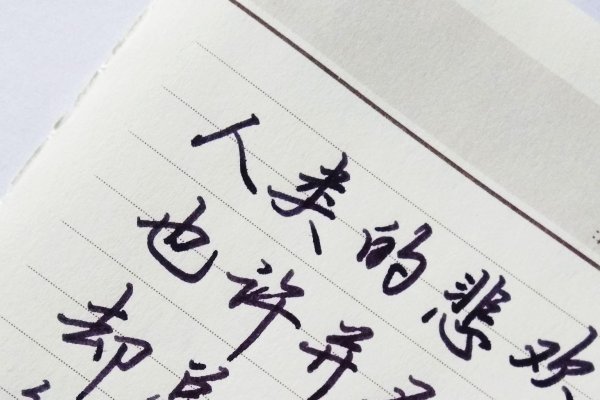 人类的悲欢
也许并
却